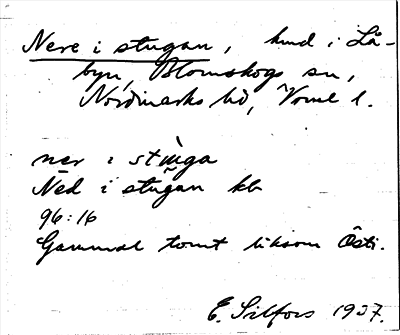 Nere i stugan, hmd i Lå-
byn, Blomskogs sn,
Nordmarks hd, Värml l.
ner i stùga
Ned i stugan kb
96:16
Gammal tomt liksom Östi.
E. Silfors 1937.